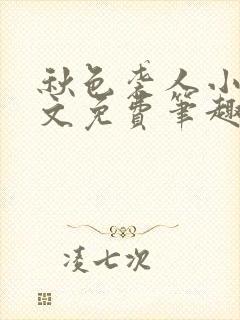 秋色袭人小
文免费笔趣
凌七次